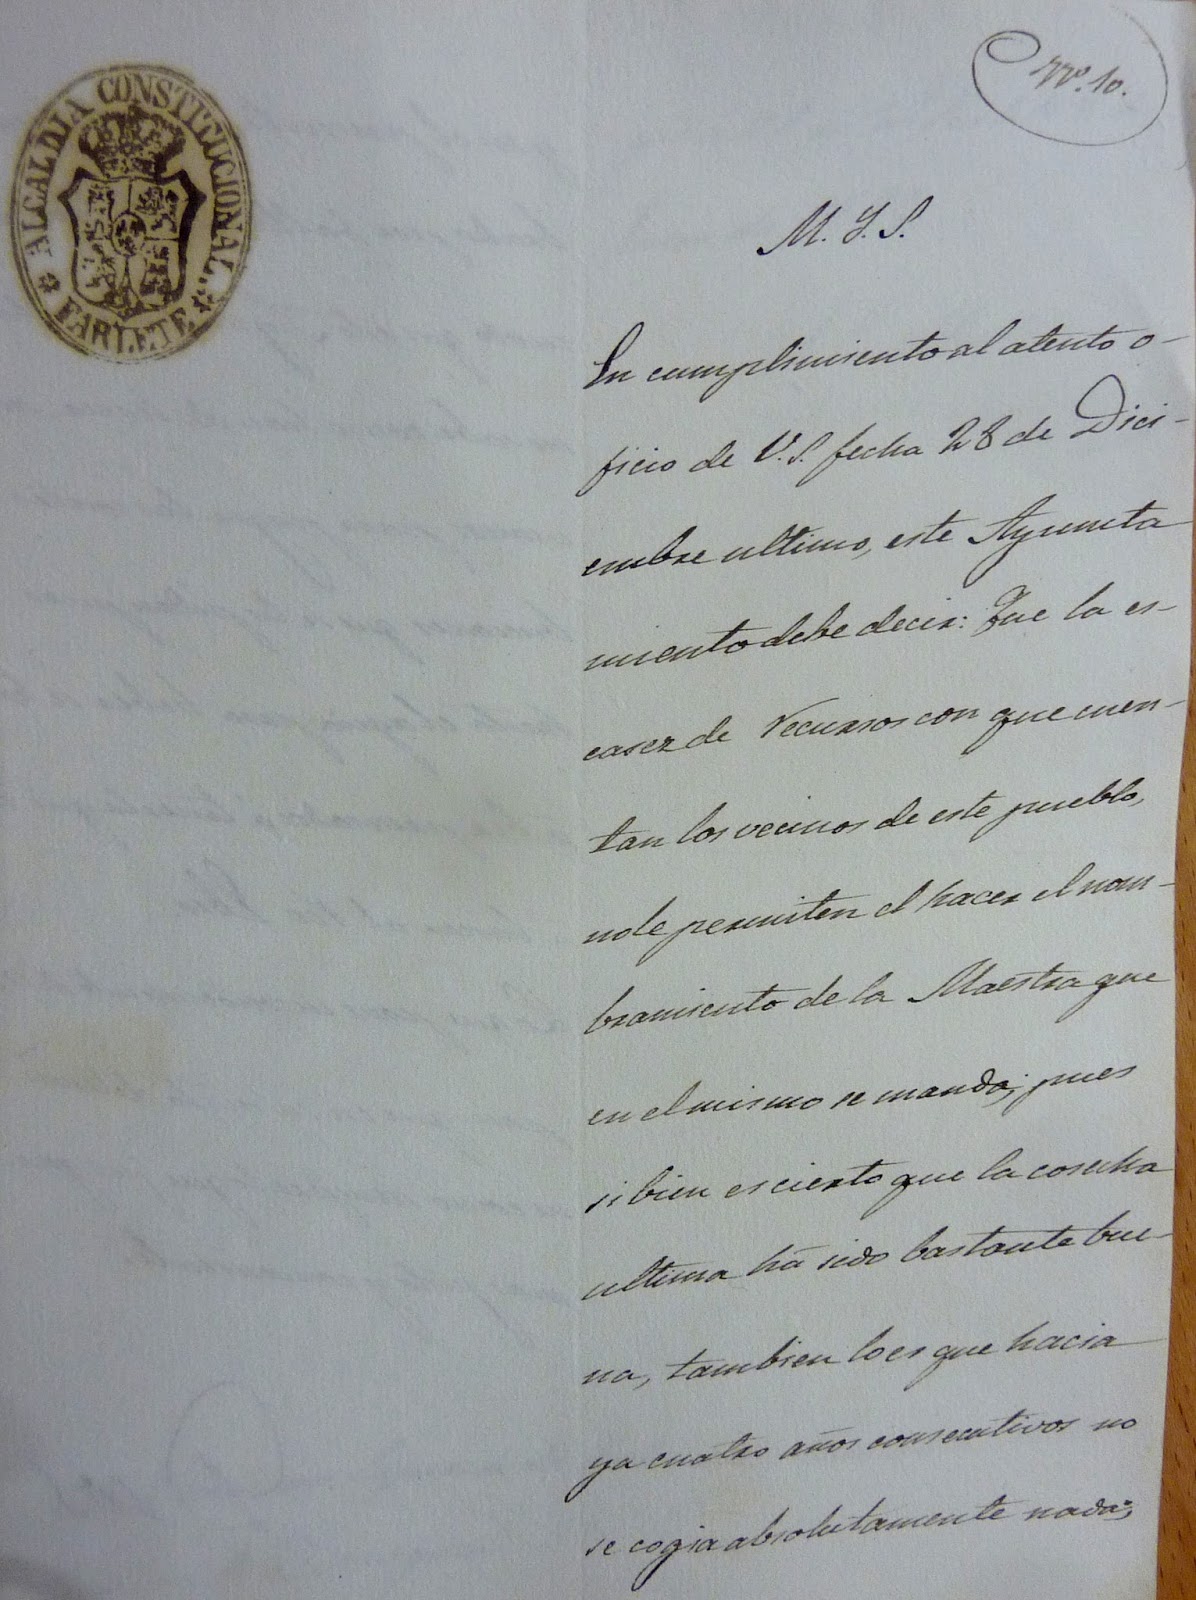 ALCALDIA CONSTITUCIONAL.
FARLETE
Nº. 10.
M. Y. S.
En cumplimiento al atento o-
ficio de V.S. fecha 28 de Dici-
embre ultimo, este Ayunta
miento debe decir: Que la es-
casez de recursos con que cuen-
tan los vecinos de este pueblo,
no le permiten el hacer el nom-
bramiento de la Maestra que
en el mismo se manda; pues
si bien es cierto que la cosecha
ultima há sido bastante bue-
na, tambien lo es que hacia
ya cuatro años consecutivos no
se cogia absolutamente nada;